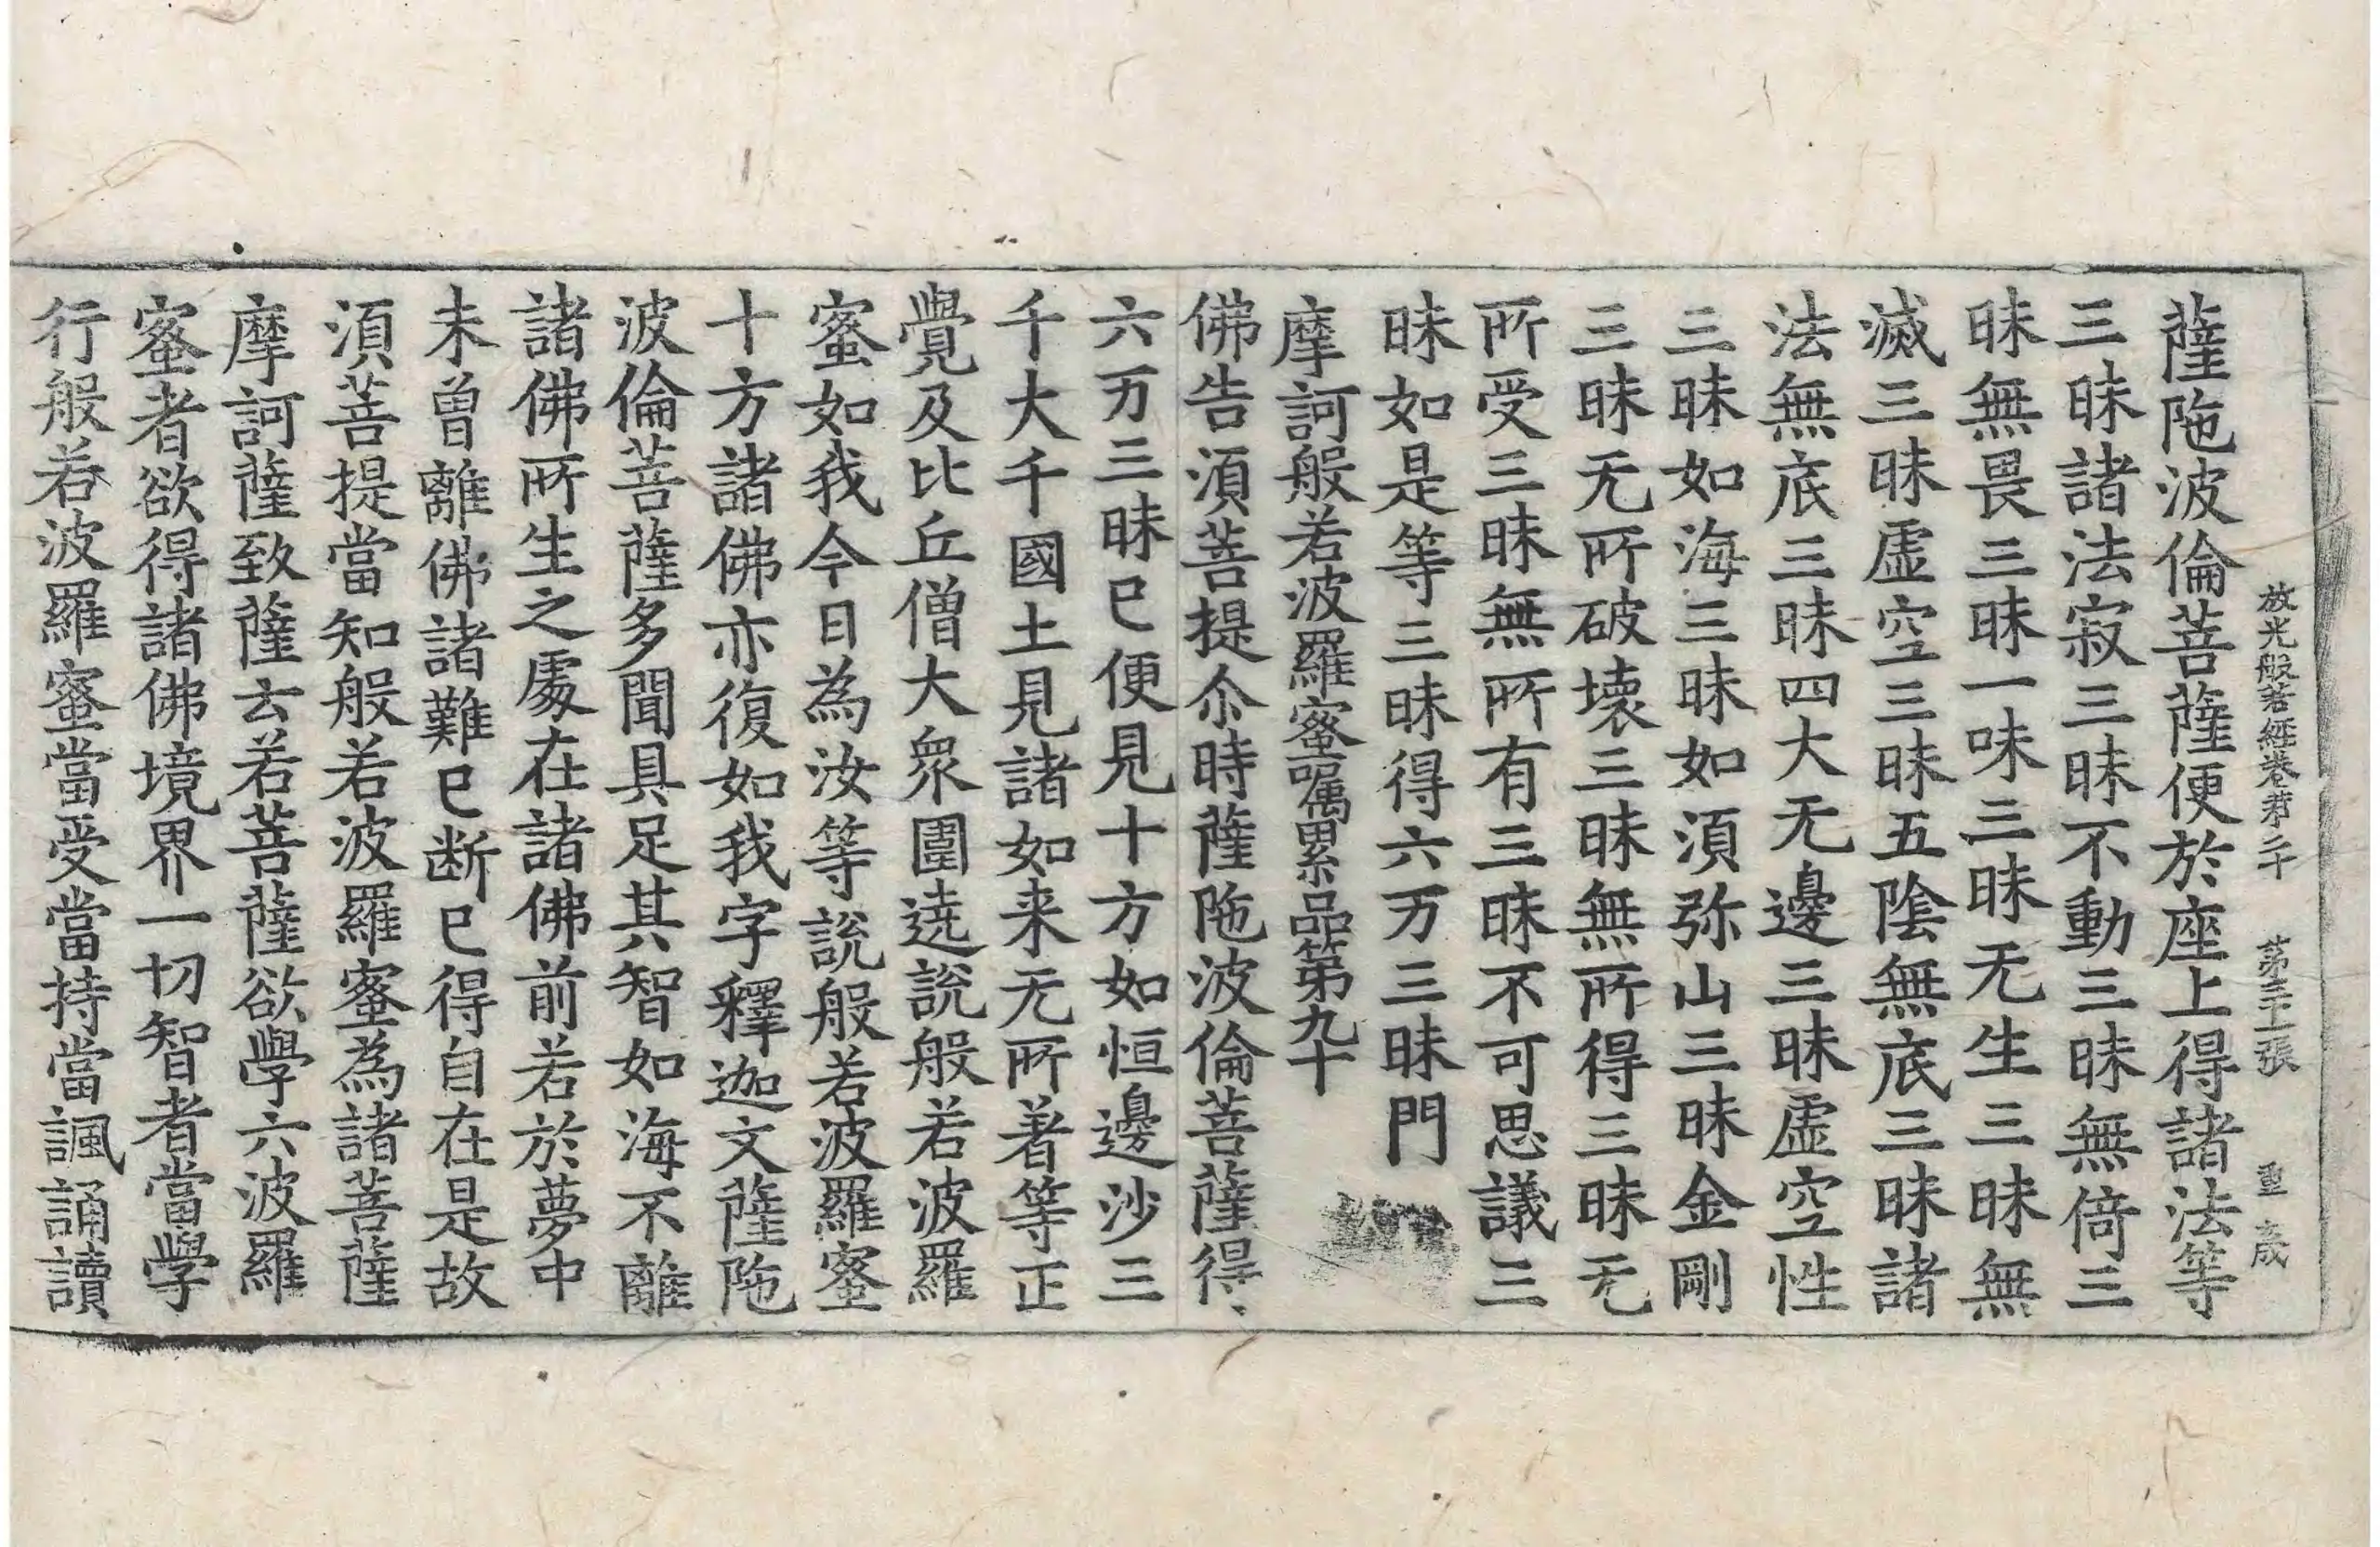 放光般若經卷苐二十 第三十二張 重 成
薩陁波倫菩薩便於座上得諸法等
三昧諸法寂三昧不動三昧無倚三
昧無畏三昧一味三昧无生三昧無
滅三昧虛空三昧五陰無底三昧諸
法無底三昧四大无邊三昧虛空性
三昧如海三昧如湏弥山三昧金剛
三昧无所破壞三昧無所得三昧无
所受三昧無所有三昧不可思議三
昧如是等三昧得六万三昧門
摩訶般若波羅蜜囑累品第九十
佛告湏菩提尒時薩陁波倫菩薩得
六万三昧已便見十方如恒邊沙三
千大千國土見諸如来无所著等正
覺及比丘僧大衆圍遶說般若波羅
蜜如我今日為汝等說般若波羅蜜
十方諸佛亦復如我字釋迦文薩陁
波倫菩薩多聞具足其智如海不離
諸佛所生之處在諸佛前若於夢中
未曾離佛諸難已断已得自在是故
湏菩提當知般若波羅蜜為諸菩薩
摩訶薩致薩云若菩薩欲學六波羅
蜜者欲得諸佛境界一切智者當學
行般若波羅蜜當受當持當諷誦讀